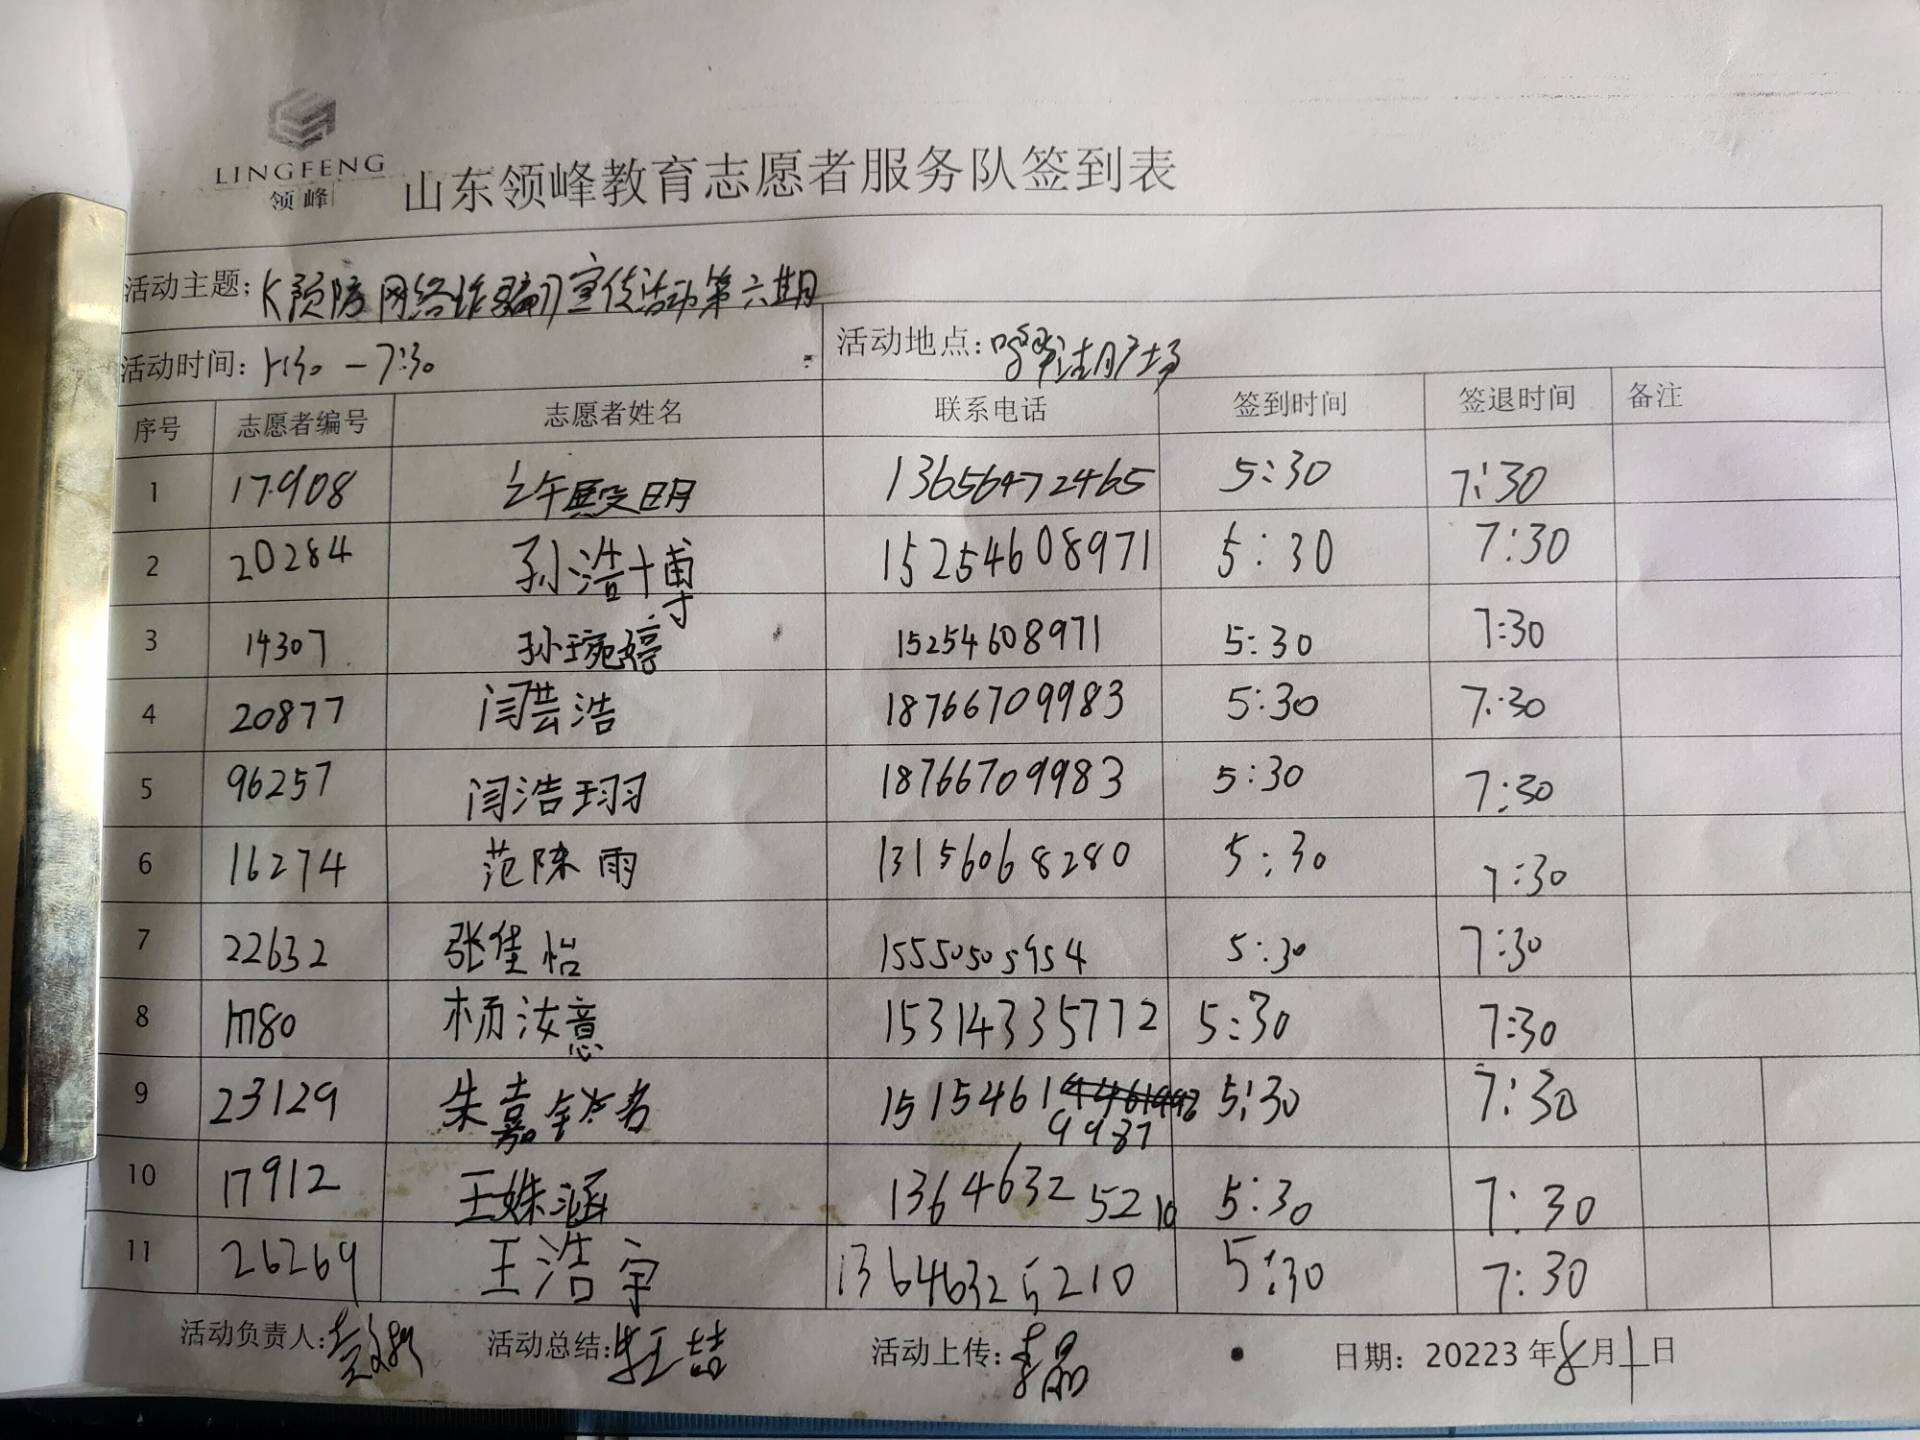 LINGFENG
领峰
山东领峰教育志愿者服务队签到表
活动主题: 《预防网络诈骗》宣传活动第六期
活动时间: 5:30-7:30 活动地点: 广场
序号 志愿者编号 志愿者姓名 联系电话 签到时间 签退时间 备注
1 17908 殿明 13656472465 5:30 7:30
2 20284 孙浩博 15254608971 5:30 7:30
3 14307 孙琬婷 15254608971 5:30 7:30
4 20877 闫芸浩 18766709983 5:30 7:30
5 96257 闫浩羽 18766709983 5:30 7:30
6 16274 范陈雨 13156068280 5:30 7:30
7 22632 张佳怡 15550505954 5:30 7:30
8 杨汝意 15314335772 5:30 7:30
9 23129 朱嘉 15154619987 5:30 7:30
10 17912 王姝涵 13646325210 5:30 7:30
11 26269 王浩宇 13646325210 5:30 7:30
活动负责人: 活动总结: 活动上传: 李晶 日期: 20223年8月1日